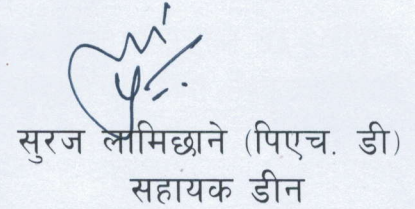 सुरज लामिछाने (पिएच. डी)
सहायक डीन